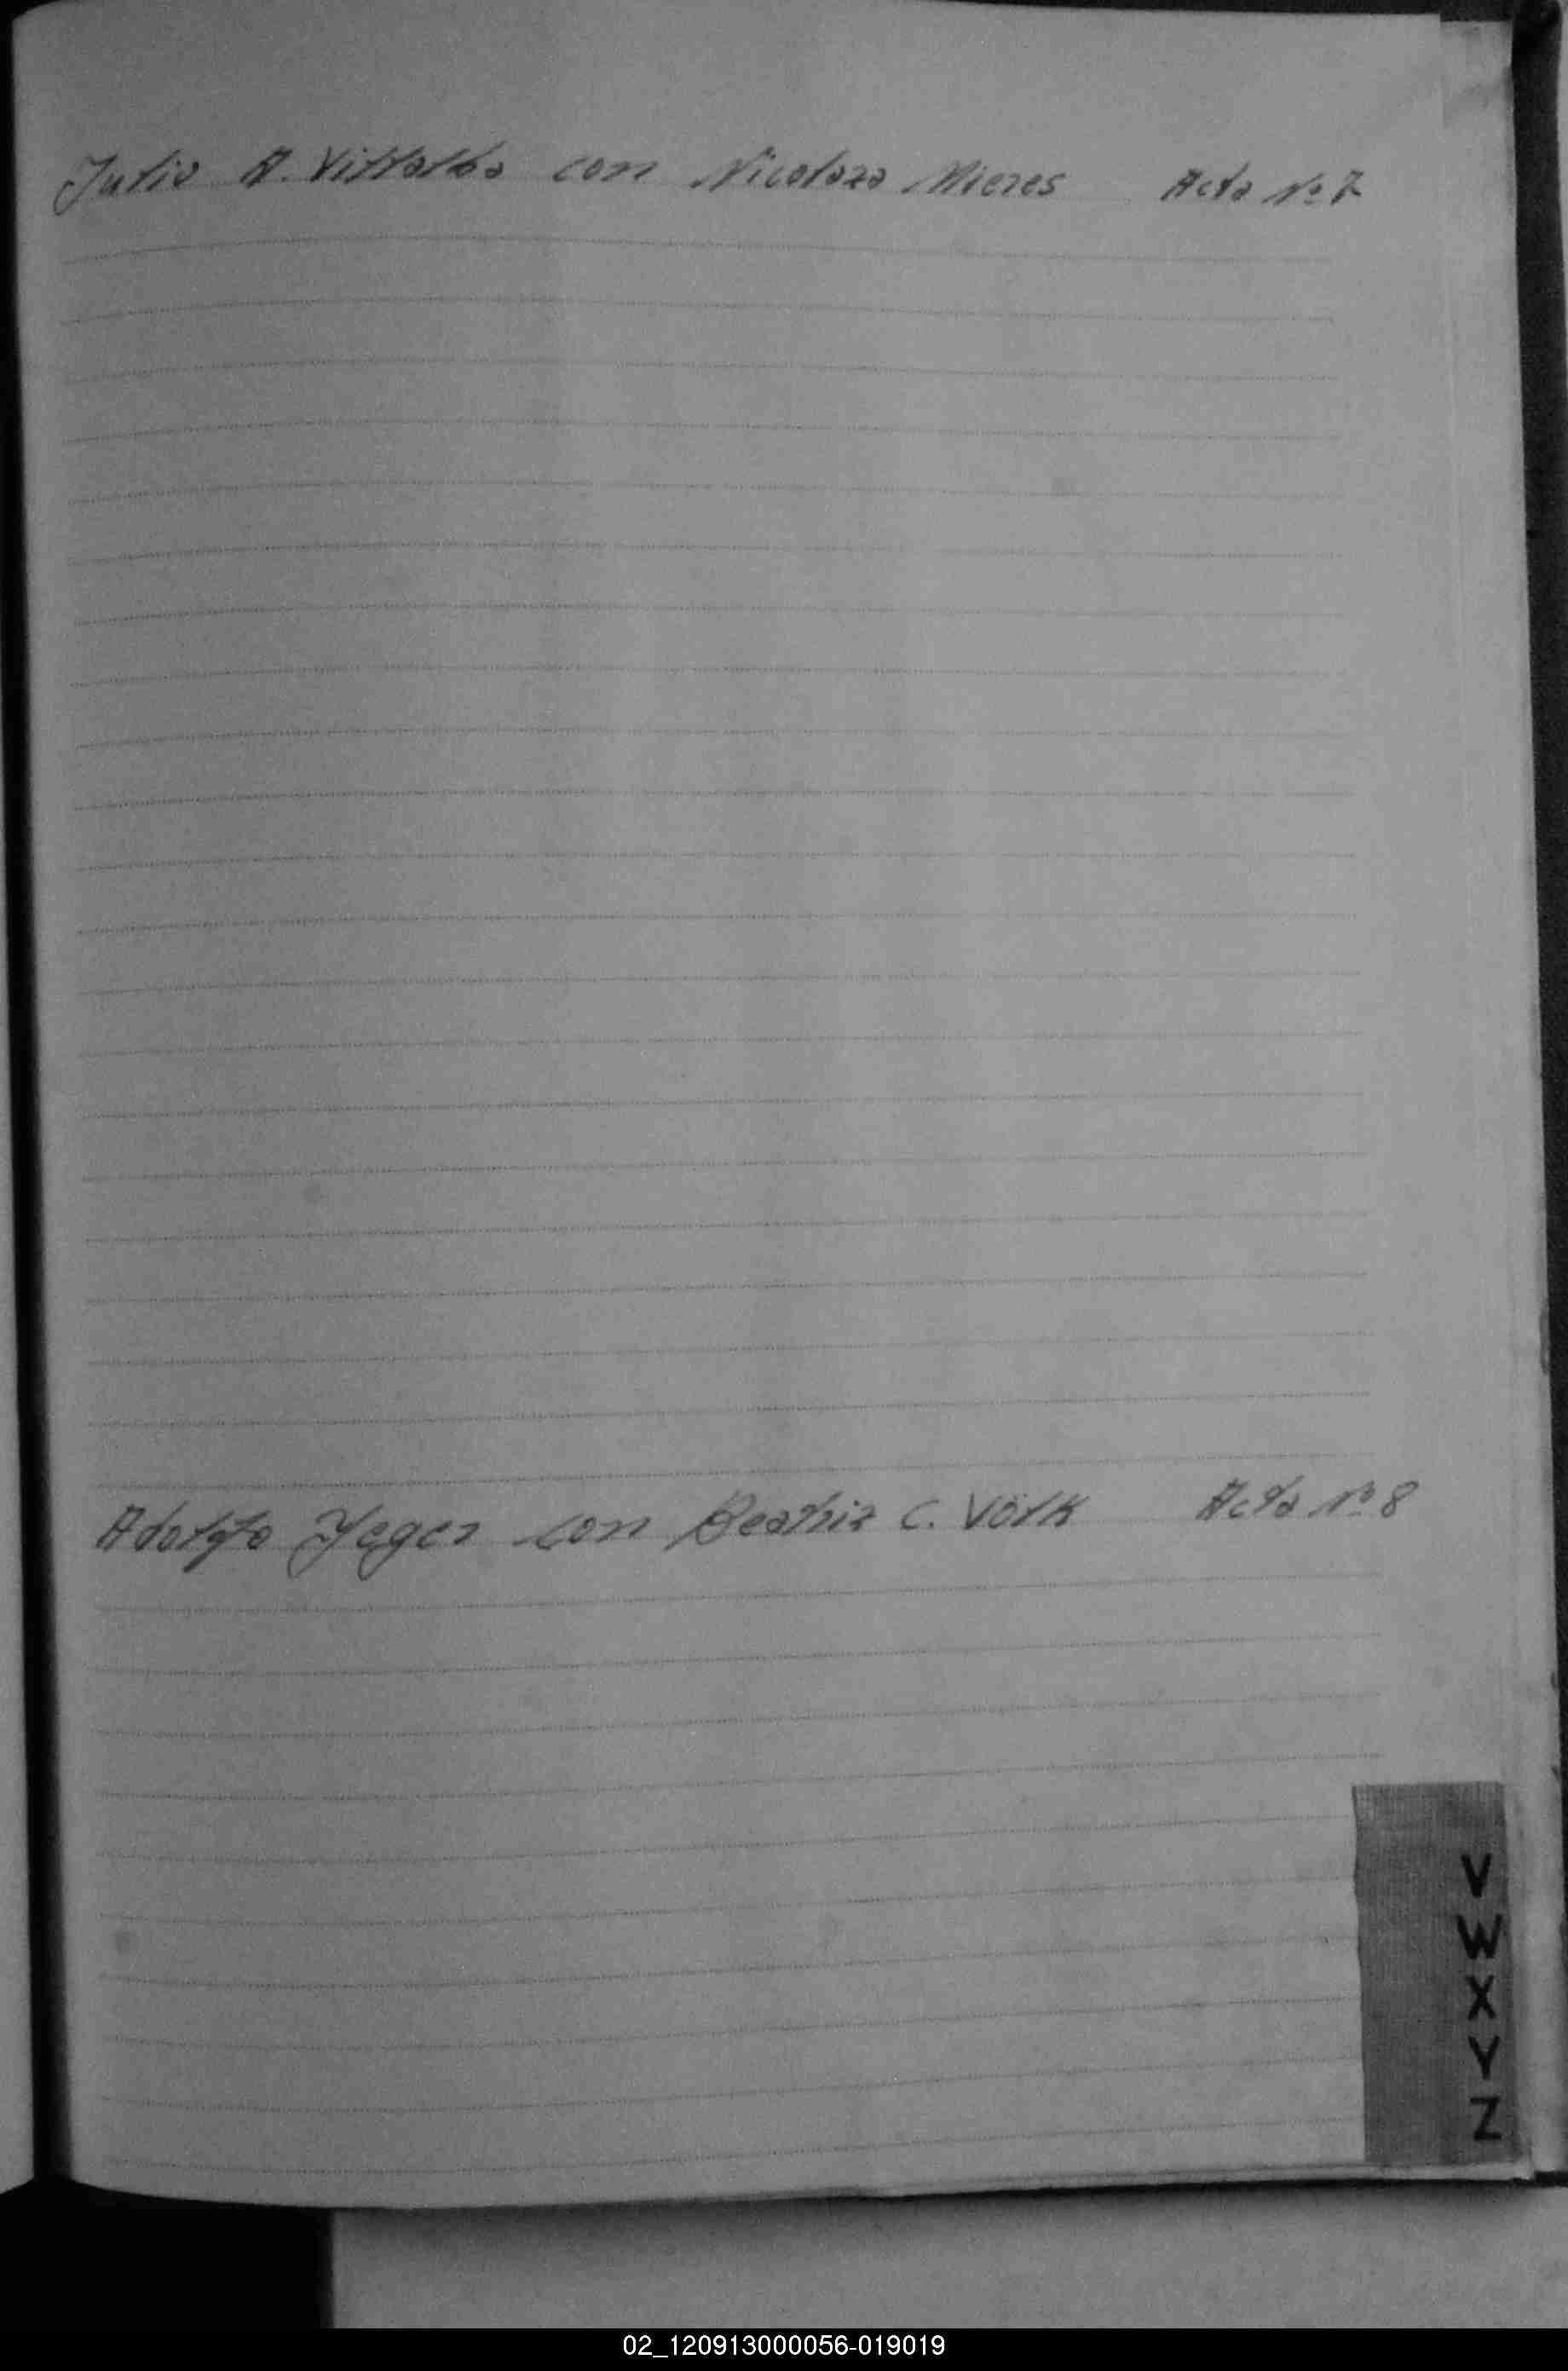 Julio A. Villalba con Nicolaza Mieres Acta Nº 7
Adolfo Yeger con Beatriz C. Völk Acta Nº 8
V
W
X
Y
Z
02_120913000056-019019